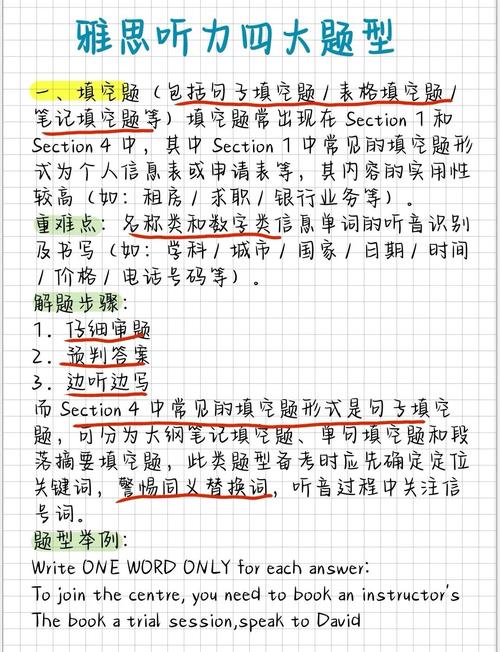 雅思听力四大题型
一、填空题（包括句子填空题/表格填空题/
笔记填空题等）填空题常出现在 Section 1 和
Section 4 中，其中 Section 1 中常见的填空题形
式为个人信息表或申请表等，其内容的实用性
较高（如：租房/求职/银行业务等）。
重难点：名称类和数字类信息单词的听音识别
及书写（如：学科/城市/国家/日期/时间
/价格/电话号码等）。
解题步骤：
1. 仔细审题
2. 预判答案
3. 边听边写
而 Section 4 中常见的填空题形式是句子填空
题，可分为大纲笔记填空题、单句填空题和段
落摘要填空题，此类题型备考时应先确定定位
关键词，警惕同义替换词，听音过程中关注信
号词。
题型举例：
Write ONE WORD ONLY for each answer:
To join the centre, you need to book an instructor's
The book a trial session,speak to David